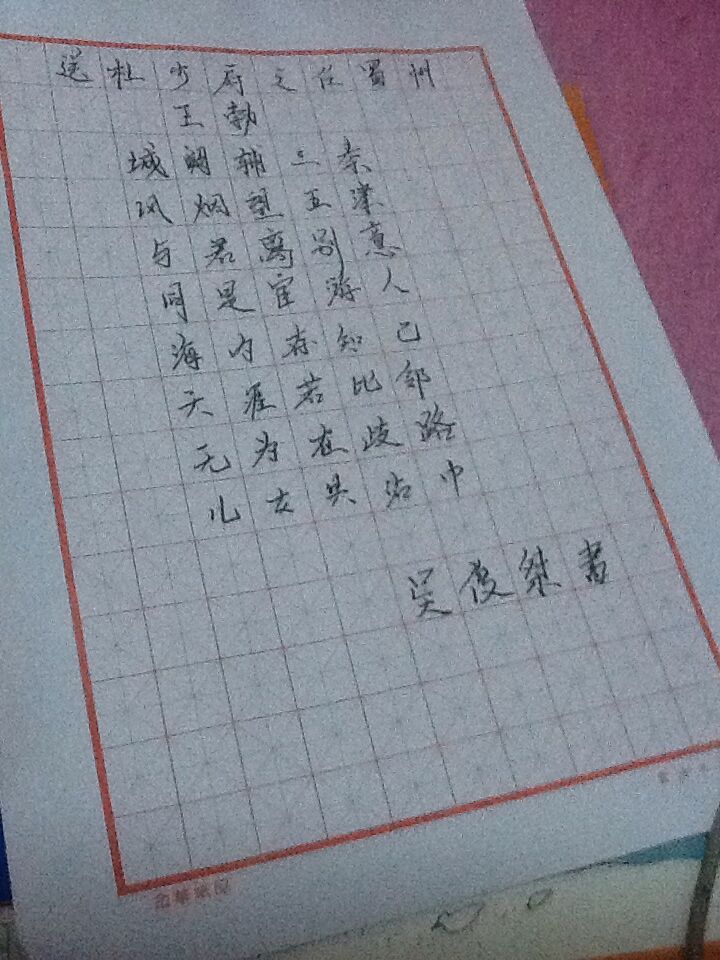 送杜少府之任蜀州
王勃
城阙辅三秦
风烟望五津
与君离别意
同是宦游人
海内存知己
天涯若比邻
无为在歧路
儿女共沾巾
吴俊桀书